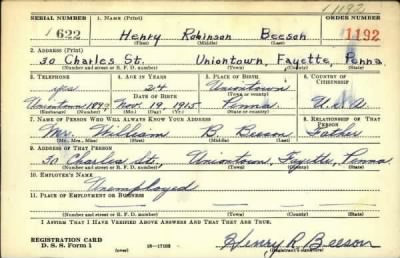 11192
SERIAL NUMBER 1. NAME (Print) ORDER NUMBER
1622 Henry Robinson Beeson 1192
(First) (Middle) (Last)
2. ADDRESS (Print)
30 Charles St. Uniontown, Fayette, Penna.
(Number and street or R. F. D. number) (Town) (County) (State)
3. TELEPHONE 4. AGE IN YEARS 5. PLACE OF BIRTH 6. COUNTRY OF CITIZENSHIP
yes 24 Uniontown
DATE OF BIRTH (Town or county)
Uniontown Nov. 19, 1915 Penna. U.S.A.
(Exchange) (Number) (Mo.) (Day) (Yr.) (State or country)
7. NAME OF PERSON WHO WILL ALWAYS KNOW YOUR ADDRESS 8. RELATIONSHIP OF THAT PERSON
Mr. William B. Beeson Father
(Mr., Mrs., Miss) (First) (Middle) (Last)
9. ADDRESS OF THAT PERSON
30 Charles St., Uniontown, Fayette, Penna
(Number and street or R. F. D. number) (Town) (County) (State)
10. EMPLOYER'S NAME
Unemployed
11. PLACE OF EMPLOYMENT OR BUSINESS
(Number and street or R. F. D. number) (Town) (County) (State)
I AFFIRM THAT I HAVE VERIFIED ABOVE ANSWERS AND THAT THEY ARE TRUE.
REGISTRATION CARD
D. S. S. Form 1 (over) Henry R. Beeson
(Registrant's signature)